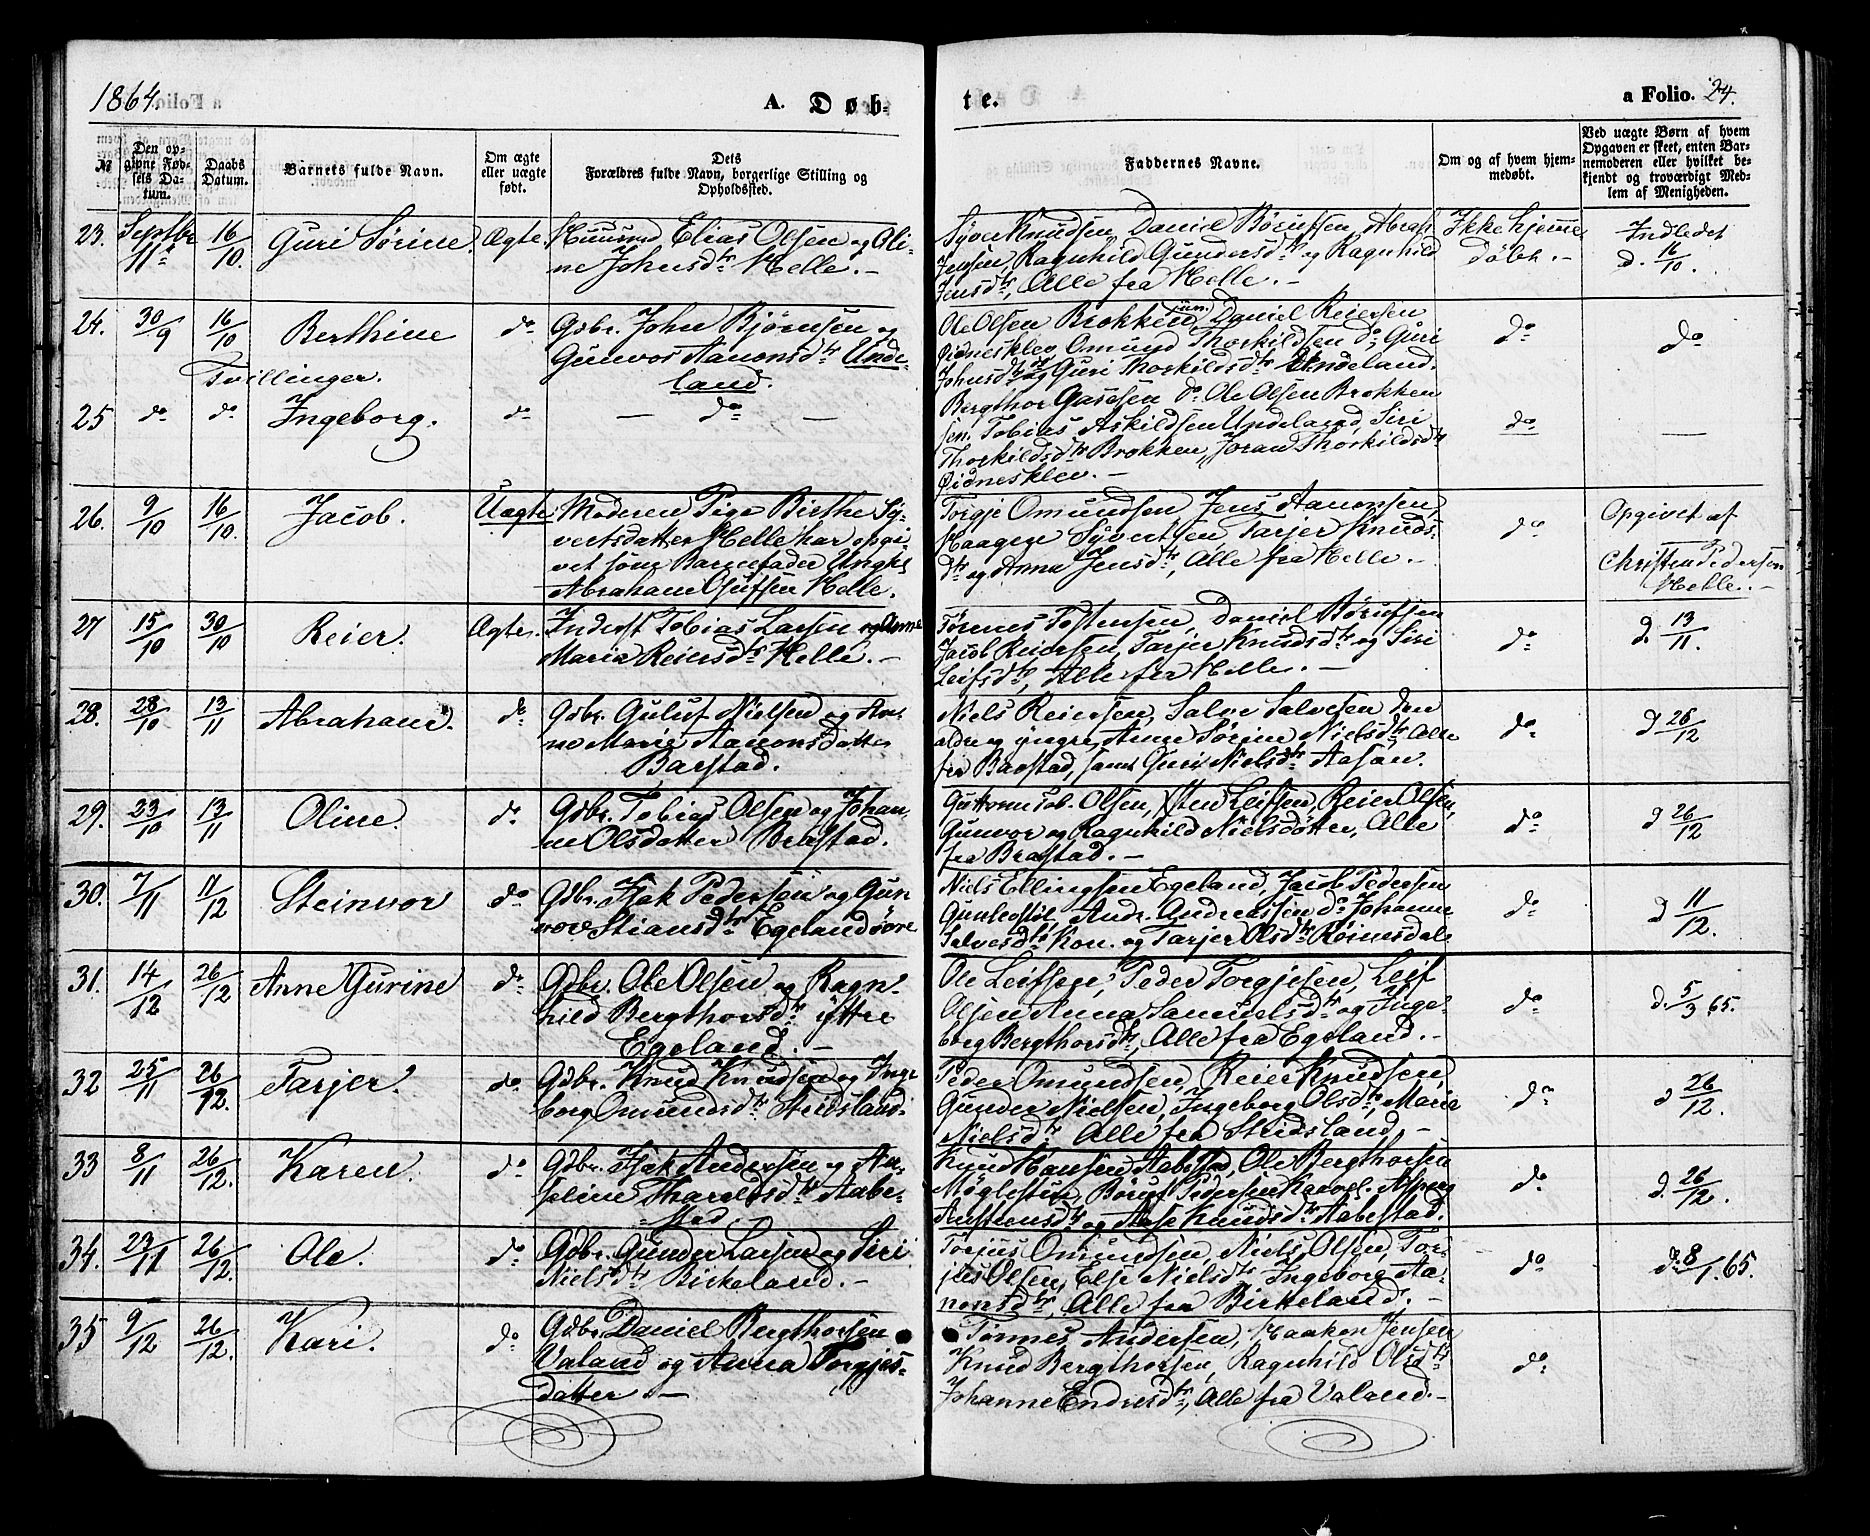 1864.
A. Døb-
te.
a Folio. 24.
№
Den op-
givne Fød-
sels Da-
tum.
Daabs
Datum.
Barnets fulde Navn.
Om ægte
eller uægte
født.
Dets
Forældres fulde Navn, borgerlige Stilling og
Opholdssted.
Faddernes Navne.
Om og af hvem hjem-
medøbt.
Ved uægte Børn af hvem
Opgaven er skeet, enten Bar-
nemoderen eller hvilket be-
kjendt og troværdigt Med-
lem af Menigheden.
23. Septbr 11te 16/10 Guri Sørine. Ægte. Huusmd Elias Olsen og Oli-
ne Johnsdtr Helle. -
Syvert Knudsen, Daniel Børufsen, Abrah
Jensen, Ragnhild Gundersdtr og Ragnhild
Jensdtr, Alle fra Helle. -
Ikke hjemme
døbt. -
Indledet
d. 16/10.
24. 30/9 16/10 Berthine do Gdbr. John Bjørnsen og
Gunvor Aanonsdtr Unde-
land.
Tvillinger.
Ole Olsen Brokken jun. Daniel Reiersen
Øidnesklev Omund Thorkildsen do Guri
Johnsdtr do og Guri Thorkildsdtr Undeland.
do
do
25 do do Ingeborg. do - do -
Bergthor Gasesen do Ole Olsen Brokken
sen. Tobias Askildsen Undeland, Siri
Thorkildsdtr Brokken, Joran Thorkildsdtr
Øidnesklev. -
do
-
26. 9/10 16/10 Jacob. Uægte Moderen Pige Birthe Sy-
vertsdatter Helle har opgi
vet som Barnefader Ungks
Abraham Olufsen Helle.
Torgje Omundsen, Jens Aanonsen,
Haagen Syvertsen, Tarjer Knuds-
dtr og Anna Jensdtr, Alle fra Helle. -
do
Opgivet af
Christen Pedersen
Helle. -
27 15/10 30/10 Reier. Ægte. Inderst Tobias Larsen og Anne
Maria Reiersdtr Helle. -
Tønnes Tostensen, Daniel Børufsen
Jacob Reiersen, Tarjer Knudsdtr og Siri
Leifsdtr, Alle fra Helle. -
do
d. 13/11.
28. 28/10 13/11 Abraham. do Gdbr. Guluf Nielsen og An-
ne Marie Aanonsdatter
Barstad.
Niels Reiersen, Salve Salvesen den
ældre og yngre, Anne Sørine Nielsdtr, Alle
fra Barstad, samt Guri Nielsdtr Aasan.
do
d 26/12
29. 23/10 13/11 Oline. do Gdbr. Tobias Olsen og Johan
ne Olsdatter Brastad.
Guttorm Tob. Olsen, Sten Leifsen, Reier Olsen,
Gunvor og Ragnhild Nielsdøttre, Alle
fra Brastad. -
do
d 26/12
30. 7/11 11/12 Steinvor do Gdbr. Isak Pedersen og Gun
vor Stiansdtr Egeland øvre
Niels Ellingsen Egeland, Jacob Pedersen
Gunleostøl, Andr. Andreassen do Johanne
Salvesdtr Kon. og Tarjer Olsdtr Røinesdal
do
d 11/12.
31. 14/12 26/12 Anne Gurine do Gdbr. Ole Olsen og Ragn-
hild Bergthorsdtr yttre
Egeland. -
Ole Leifsen, Peder Torgjesen, Leif
Olsen Anna Samuelsdtr og Inge-
borg Bergthorsdtr, Alle fra Egeland. -
do
d. 5/3 65.
32 25/11 26/12. Tarjer. do Gdbr. Knud Knudsen og Inge
borg Omundsdtr Stedsland.
Peder Omundsen, Reier Knudsen,
Gunder Nielsen, Ingeborg Olsdtr, Marie
Nielsdtr Alle fra Stedsland. -
do
d 26/12.
33 8/11 26/12. Karen. do Gdbr. Isak Andersen og An-
seline Tharaldsdtr Aabe-
stad
Knud Hansen Aabestad, Ole Bergthorsen
Møglestue, Børuf Pedersen
Austensdtr og Aase Knudsdtr Aabestad.
do
d. 26/12.
34. 23/11 26/12. Ole. do Gdbr. Gunder Larsen og Siri
Nielsdtr Birkeland. -
Torjus Omundsen, Niels Olsen, Tor-
jus Olsen, Else Nielsdtr Ingeborg Aa-
nonsdtr, Alle fra Birkeland. -
do
d. 8/1. 65.
35 9/12 26/12. Kari. do Gdbr. Daniel Bergthorsen
Valand og Anna Torgjes-
datter. -
Tønnes Andersen, Haaken Jensen
Knud Bergthorsen, Ragnhild Olsdtr
Johanne Endresdtr, Alle fra Valand. -
do